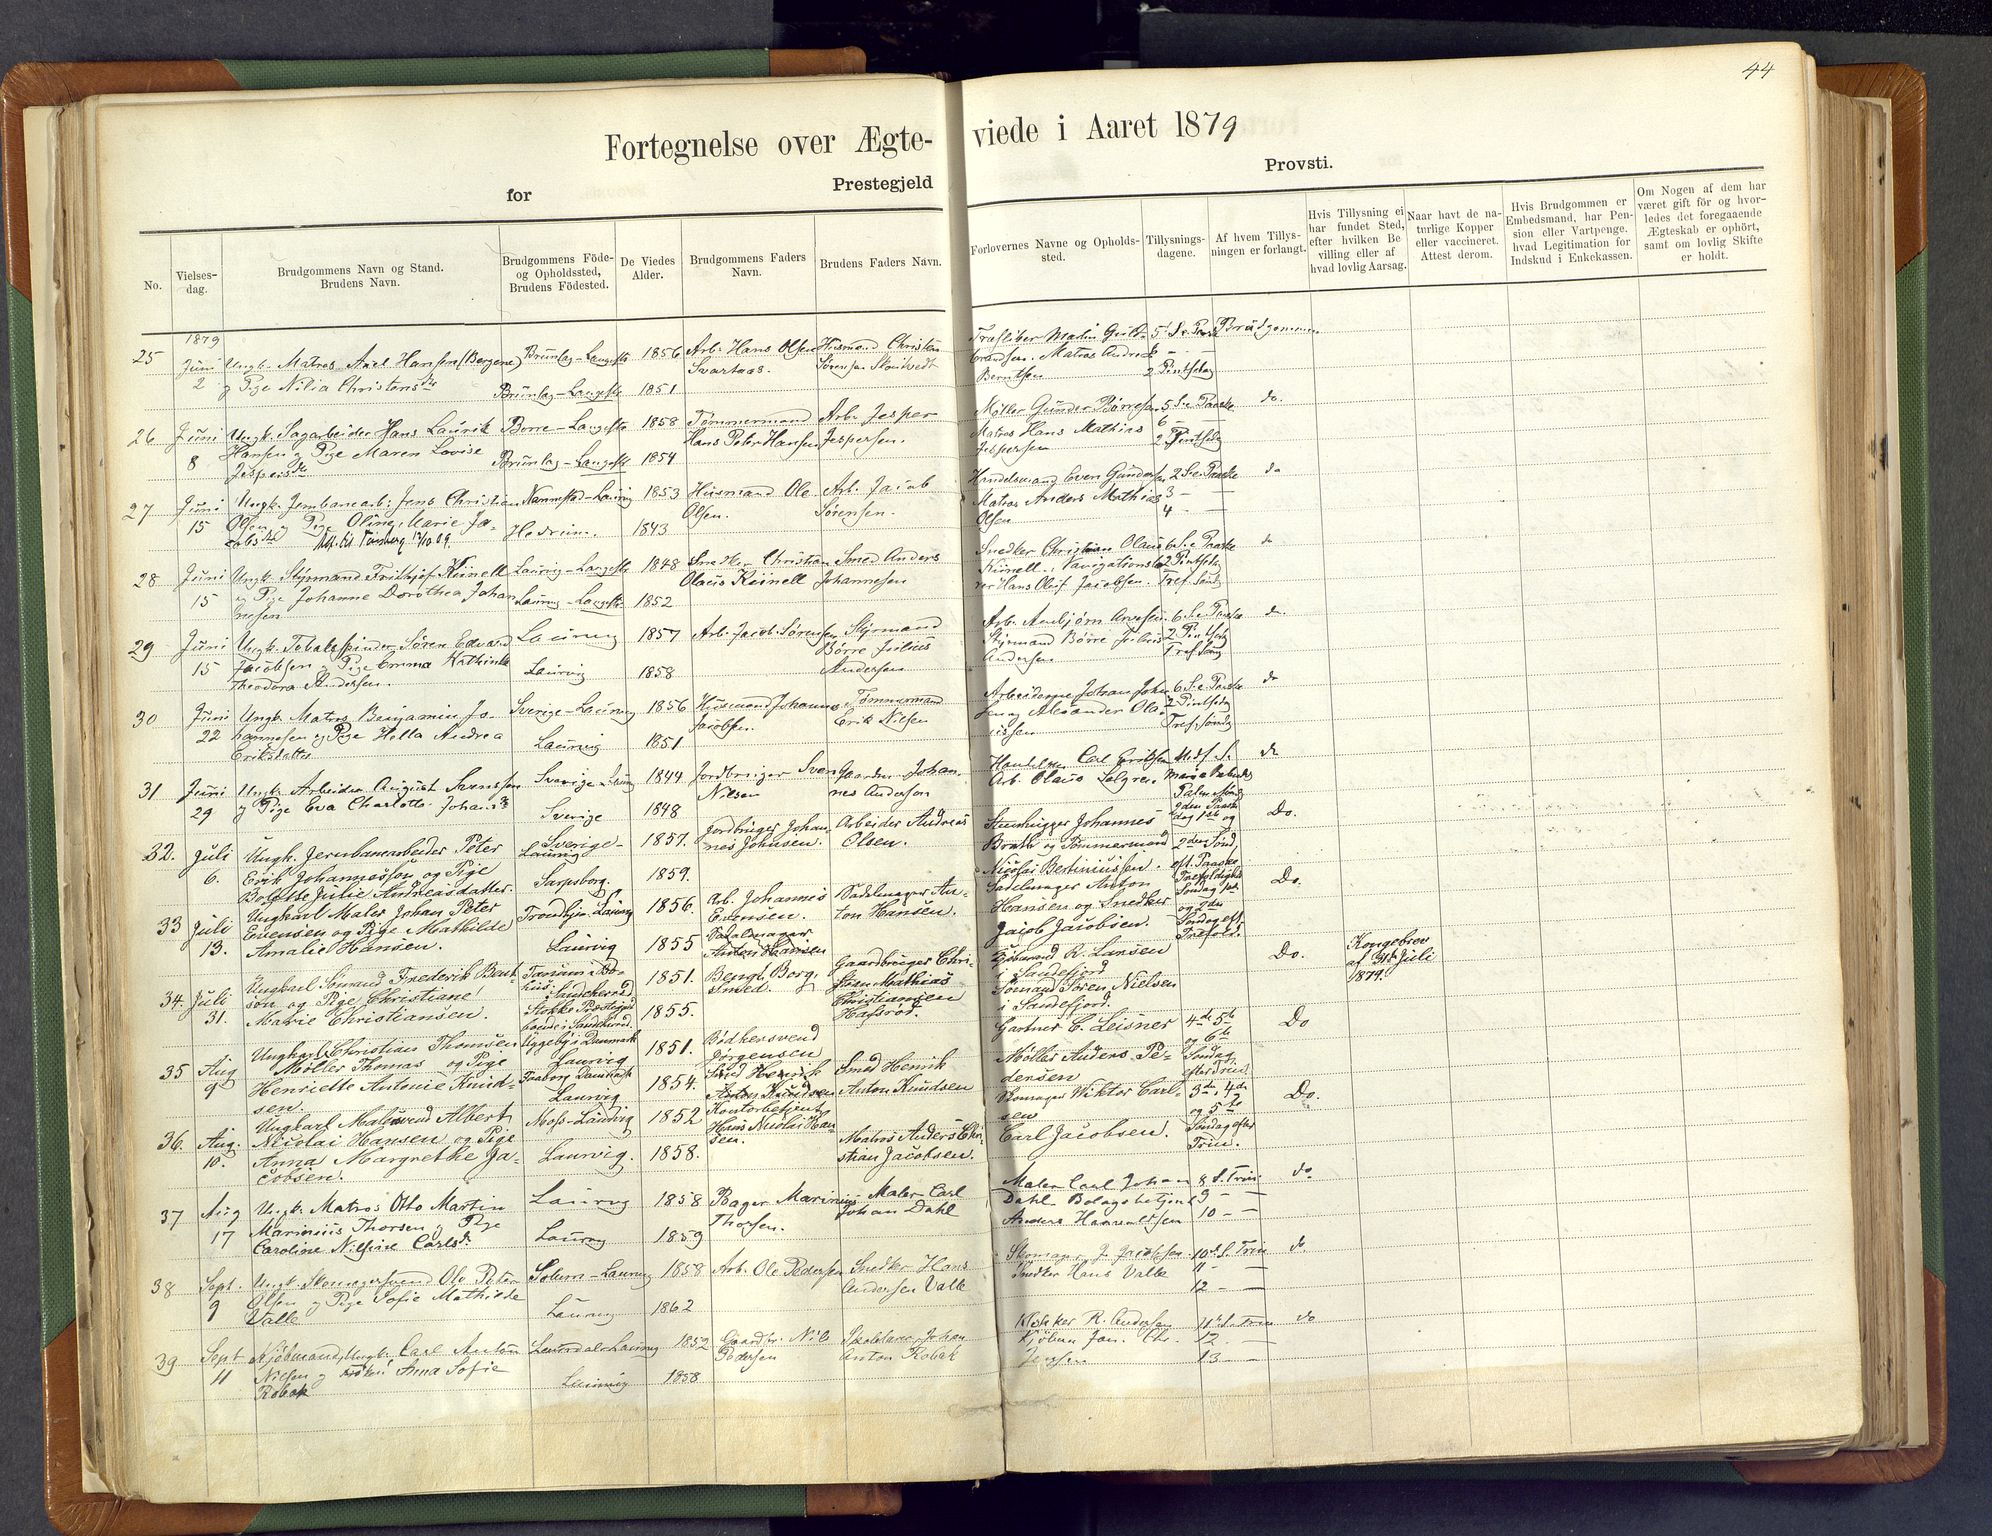 44
Fortegnelse over Ægte-viede i Aaret 1879
for Prestegjeld Provsti.
No.
Vielses-dag.
Brudgommens Navn og Stand.
Brudens Navn.
Brudgommens Föde- og Opholdssted,
Brudens Födested.
De Viedes Alder.
Brudgommens Faders Navn.
Brudens Faders Navn.
Forlovernes Navne og Opholds-sted.
Tillysnings-dagene.
Af hvem Tillys-ningen er forlangt.
Hvis Tillysning ei har fundet Sted, efter hvilken Be villing eller af hvad lovlig Aarsag.
Naar havt de na-turlige Kopper eller vaccineret. Attest derom.
Hvis Brudgommen er Embedsmand, har Pen-sion eller Vartpenge. hvad Legitimation for Indskud i Enkekassen.
Om Nogen af dem har været gift för og hvor-ledes det foregaaende Ægteskab er ophört, samt om lovlig Skifte er holdt.
1879
25 Juni Ungk. Matros Axel Hansen (Bergene) Brunlag-Langestr 1856 Arb. Hans Olsen Husmand Christen 5 S. e. Paaske Brudgommen
2 og Pige Nilia Christensdtr Brunlag-Langestr 1851 Svartaas. Sørensen Berntsen 2 Pintsedag
26 Juni Ungk. Sagarbeider Hans Laurik Borre-Langestr 1858 Tømmermand Arb. Jesper Møller Gunder Børresen 5 S. e. Paaske do.
8 Hansen og Pige Maren Lovise Brunlag-Langestr 1854 Hans Peter Hansen Jespersen. Matros Hans Mathias 6 –
Jespersdtr Jespersen 2 Pintsedag
27 Juni Ungk. Jernbanearb. Jens Christian -Laurvig 1853 Husmand Ole Arb. Jacob Handelsmand Even Gundersen 2 S. e. Paaske do
15 Olsen og Pige Oline Marie Ja- Hedrum. 1843 Olsen. Sørensen. Matros Anders Mathias 3 – –
cobsdtr Olsen 4 – –
28 Juni Ungk. Styrmand Frithjof Künell Laurvig-Langestr 1848 Snedker Christian Smed Anders Snedker Christian Olaus 6 S. e. Paaske do
15 og Pige Johanne Dorothea Johan Laurvig-Langestr 1852 Olaus Künell Johannesen Künell. Navigationslæ 2 Pintsedag
nesen rer Hans Oluf Jacobsen. Tref. Sønd
29 Juni Ungk. Tobaksspinder Søren Edvard Laurvig 1857 Arb. Jacob Sørensen Styrmand Arb. Anbjørn 6 S. e. Paaske do.
15 Jacobsen og Pige Emma Kathinka Laurvig 1858 Børre Julius Styrmand Børre Julius 2 Pintsedag
Theodora Andersen. Andersen Andersen Tref. Sønd
30 Juni Ungk. Matros Benjamin Jo- Sverige-Laurvig 1856 Husmand Johannes Tømmermand 6 S. e. Paaske do
22 hannesen og Pige Hella Andrea Laurvig 1851 Jacobsen Erik Nilsen Alexander 2 Pintsedag
Eriksdatter Tref. Sønd
31 Juni Ungk. Arbeider August Svensson Sverige-Laurv 1844 Jordbruger Sven Gaardm. Johan- Carl do
29 og Pige Eva Charlotte Johansdtr Sverige 1848 Nilsen nes Anderson Arb. Olaus Palm Sønd
32. Juli Ungk. Jernbanearbeider Peter Sverige-Laurvig 1857. Jordbruger Johan- Arbeider Andreas Steenhugger Johannes 2den Paaske dag 1ste og Do.
6. Erik Johannesson og Pige Sarpsborg. 1859. nes Johnsen. Olsen. Brath og Tømmermand 2den Sønd,
Julie Andreasdatter. Nicolai Bertiniussen. eft. Paaske
33 Juli Ungkarl Maler Johan Peter Trondhjem-Laurvig 1856. Arb. Johannes Sadelmager An- Sadelmager Anton Trefoldigheds Søndag Do.
13. Evensen og Pige Mathilde Laurvig 1855 Evensen. ton Hansen. Hansen og Snedker og 2den
Amalie Hansen. Sadelmager Anton Hansen Jacob Jacobsen. Søndag eft. Trefold.
34. Juli Ungkarl Sømand Frederik Bent- 1851. Bengt Borg, Gaardbruger Chri- R. Larsen Do. Kongebrev
31. son og Pige Christiane Stokke Præstegjeld 1855. Smed. stian Mathias i Sandefjord af Juli
Marie Christiansen. Christiansen Sømand Søren Nielsen 1879.
i Sandefjord.
35 Aug Ungkarl Christian Thomsen Danmark 1851. Bødkersvend Smed Henrik Gartner C. Leisner 4de 5te Do
9 Møller Thomas og Pige Laurvig 1854. Jørgensen Anton Knudsen Møller Anders Pe- og 6te
Henriette Antonie Knud- Danmark Smed Henrik dersen Søndag
sen. Laurvig Anton Knudsen efter Trin
36. Aug: Ungkarl Malersvend Albert Moss-Laurvig 1852 Kontorbetjent Matros Anders Chri- Skomager Wiktor Carl- 3de, 4de Do.
10. Nicolai Hansen og Pige Laurvig. 1858. Hans Nicolai Han- stian Jacobsen. sen og 5te
Anna Margrethe Ja- sen. Carl Jacobsen. Søndag efter
cobsen. Trin.
37 Aug Ungk. Matros Otto Martin Laurvig 1858 Bager Marinius Maler Carl Maler Carl Johan 8 S. Trin do
17 Marinius Thorsen og Pige Laurvig 1859 Thorsen. Johan Dahl Dahl. 9 – –
Caroline Nilsine Carlsdtr. Anders 10 – –
38 Sept. Ungk. Skomagersvend Ole Peter Solum-Laurvig 1858 Arb. Ole Pedersen Snedker Hans Skomager J. Jacobsen 10de S. Trin do
9 Olsen og Pige Sofie Mathilde Laurvig 1862 Andersen Valle Snedker Hans Valle 11 – –
Valle 12 – –
39 Sept Kjøbmand, Ungk. Carl Anton -Laurvig 1852 Gaardbr. Nils Johan Klokker R. Andersen 11 S. Trin do
11 Nielsen og Frøken Anna Sofie Laurvig 1858. Pedersen Anton Robak Kjøbm. Jan. Chr. 12 –
Robak Jensen 13 –